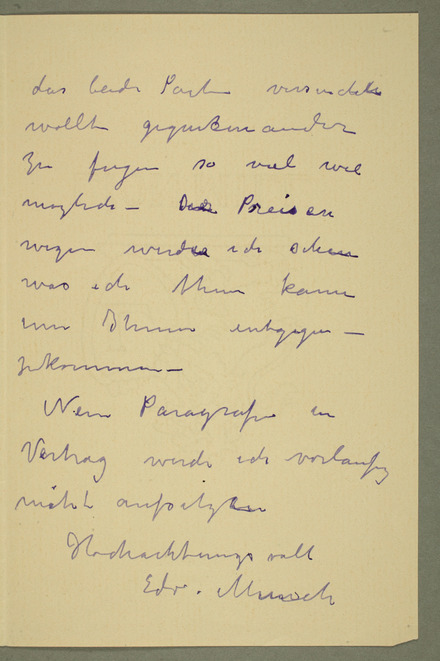 das beide Parten versuchen
wollte gegeneinander
zu fugen so viel wie
möglich – Der Preisen
wegen werde ich sehen
was ich thun kann
um Ihnen entgegen –
zukommen –
Neue Paragrafe in
Vertrag werde ich vorläufig
nicht aufsetzen
Hochachtungsvoll
Edv. Munch